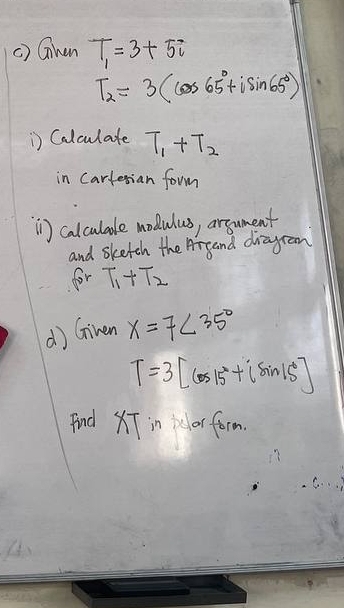 c) Given T₁ = 3 + 5i
T₂ = 3(cos 65° + i sin 65°)
i) Calculate T₁ + T₂
in Cartesian form
ii) Calculate modulus, argument
and sketch the Argand diagram
for T₁ + T₂
d) Given X = 7∠35°
T = 3[cos 15° + i sin 15°]
Find XT in polar form.